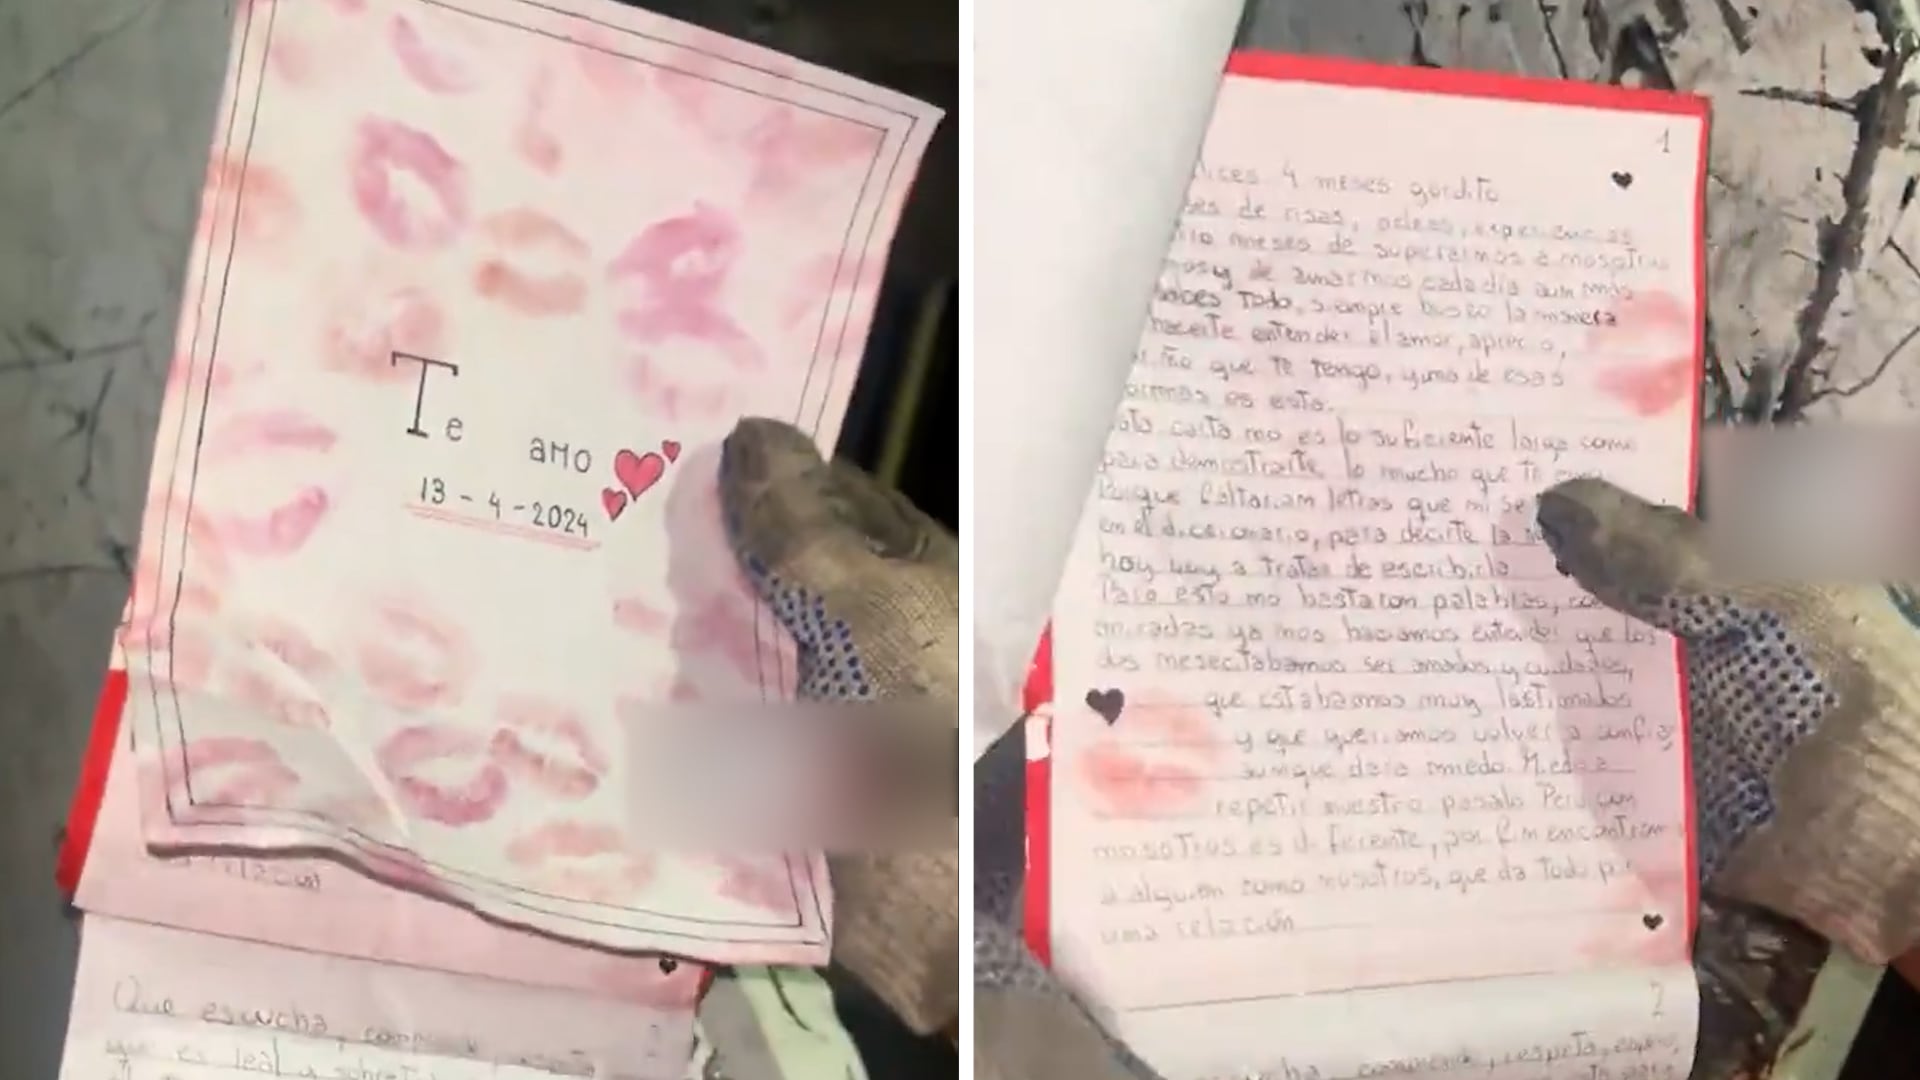 Te amo
13-4-2024
relación
Que escucha,
que es leal y
1
4 meses gordito
de risas, experiencias
meses de superarnos a nosotros
y de amarnos cada día aun más
Todo, siempre busco la manera
hacerte entender el amor, aprecio,
que Te Tengo, y una de esas
es esta.
carta no es lo suficiente larga como
para demostrarte lo mucho que te
Porque faltarian letras que mi
en el diccionario, para decirte la
hoy voy a tratar de escribirla
Para esto no bastaron palabras,
ya nos haciamos entender que los
dos necesitabamos ser amados y cuidados,
que estabamos muy lastimados
y que queriamos volver a confiar
aunque daba miedo. Miedo a
repetir nuestro pasado. Pero con
nosotros es diferente, por fin encontramos
a alguien como nosotros, que da todo
una relación
2
comprende, respeta,